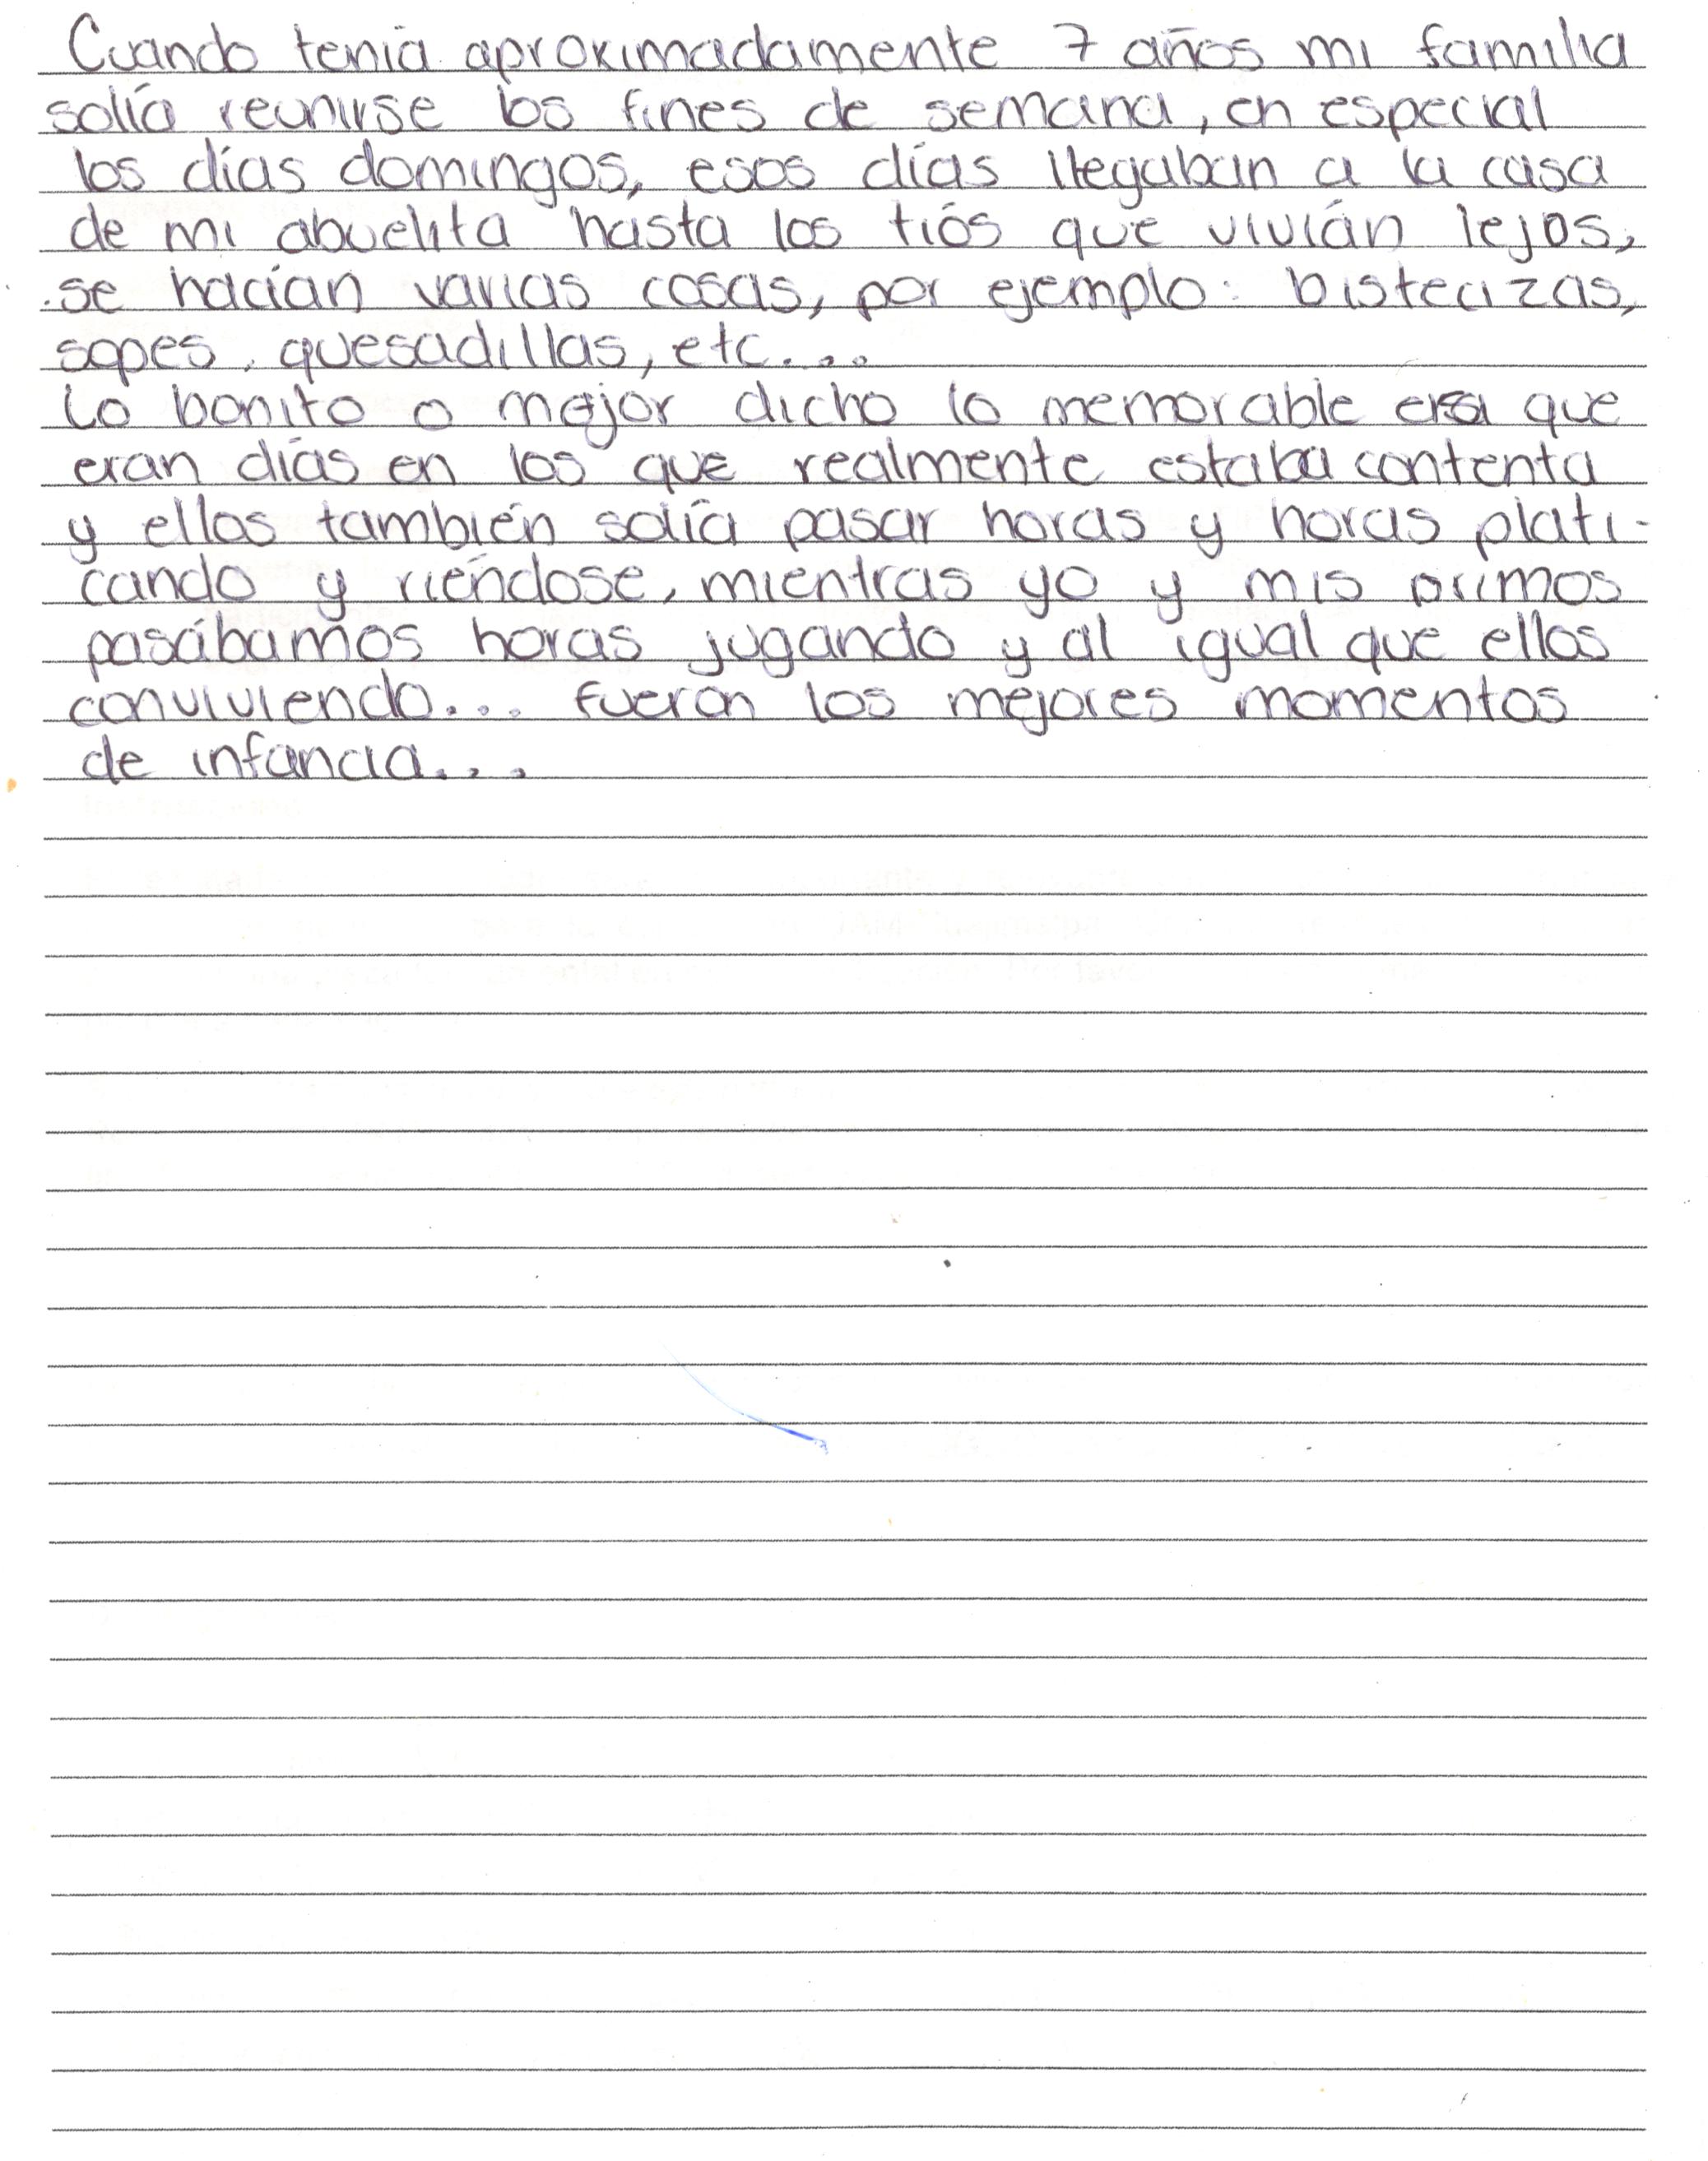 Cuando tenía aproximadamente 7 años mi familia
solía reunirse los fines de semana, en especial
los días domingos, esos días llegaban a la casa
de mi abuelita hasta los tiós que vivián lejos,
se hacían varias cosas, por ejemplo: bistecizas,
sopes, quesadillas, etc...
Lo bonito o mejor dicho lo memorable era que
eran días en los que realmente estaba contenta
y ellos también solía pasar horas y horas plati-
cando y riéndose, mientras yo y mis primos
pasábamos horas jugando y al igual que ellos
conviviendo... fueron los mejores momentos
de infancia...